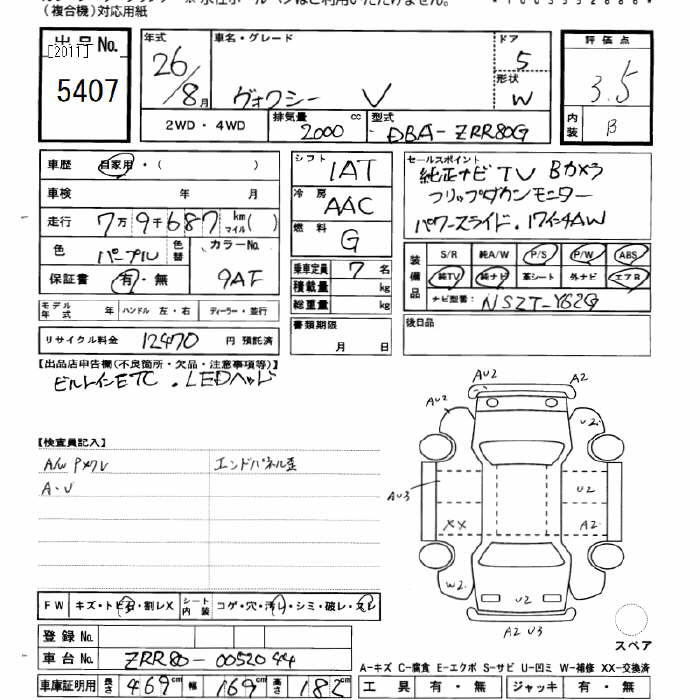 (複合機)対応用紙
出品No. [2011]
5407
年式 26/8月
車名・グレード ヴォクシー V
ドア 5
形状 W
評価点 3.5
内装 B
2WD・4WD
排気量 2000 cc
型式 DBA-ZRR80G
車歴 自家用・( )
車検 年 月
走行 7万9千687 km マイル( )
色 パープル 色替 カラーNo. 9AF
保証書 有・無
モデル年式 年 ハンドル 左・右 ディーラー・並行
リサイクル料金 12470 円 預託済
シフト IAT
冷房 AAC
燃料 G
乗車定員 7 名
積載量 kg
総重量 kg
書類期限 月 日
セールスポイント
純正ナビ TV Bカメラ
フリップダウンモニター
パワースライド. 17インチAW
装備品 S/R 純A/W P/S P/W ABS
純TV 純ナビ 革シート 外ナビ エアB
ナビ型番: NSZT-Y62G
後日品
【出品店申告欄(不良箇所・欠品・注意事項等)】
ビルトインETC . LEDヘッド
【検査員記入】
A/W Pメクレ エンドパネル歪
A・U
AU2 A2
AU2 U2
AU3 U2
XX A2
W2 U2
A2 U3
スペア
FW キズ・トビ石・割レX シート内装 コゲ・穴・汚レ・シミ・破レ・スレ
登録No.
車台No. ZRR80-0052044
車庫証明用 長さ 469cm 幅 169cm 高さ 182cm
A-キズ C-腐食 E-エクボ S-サビ U-凹ミ W-補修 XX-交換済
工具 有・無 ジャッキ 有・無